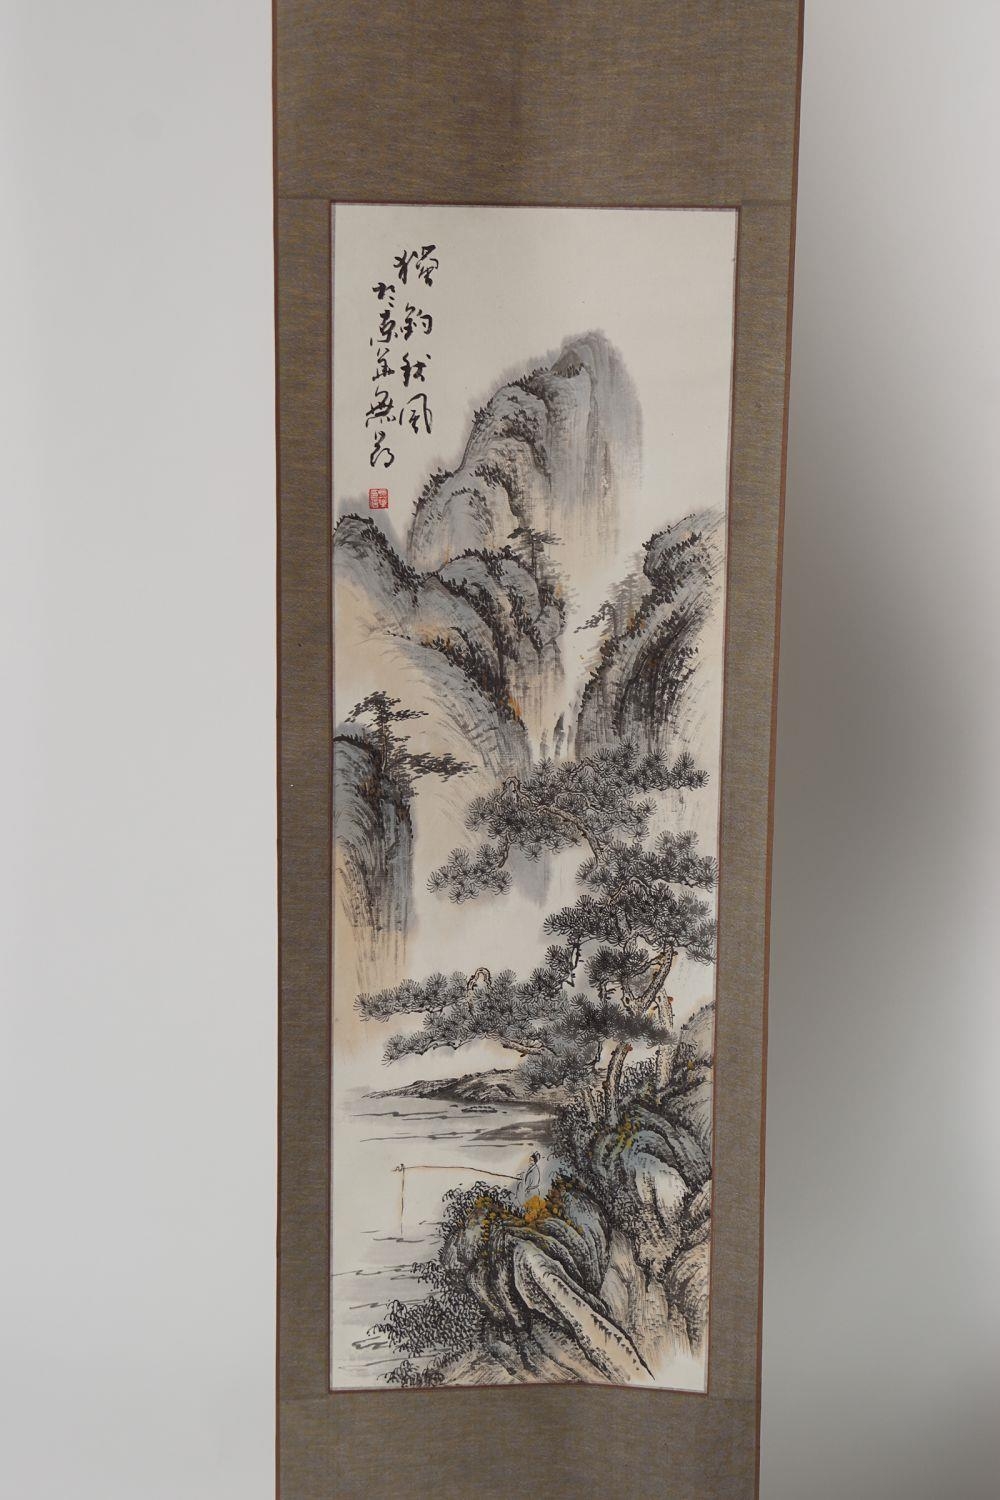 獨釣秋風
於京華無